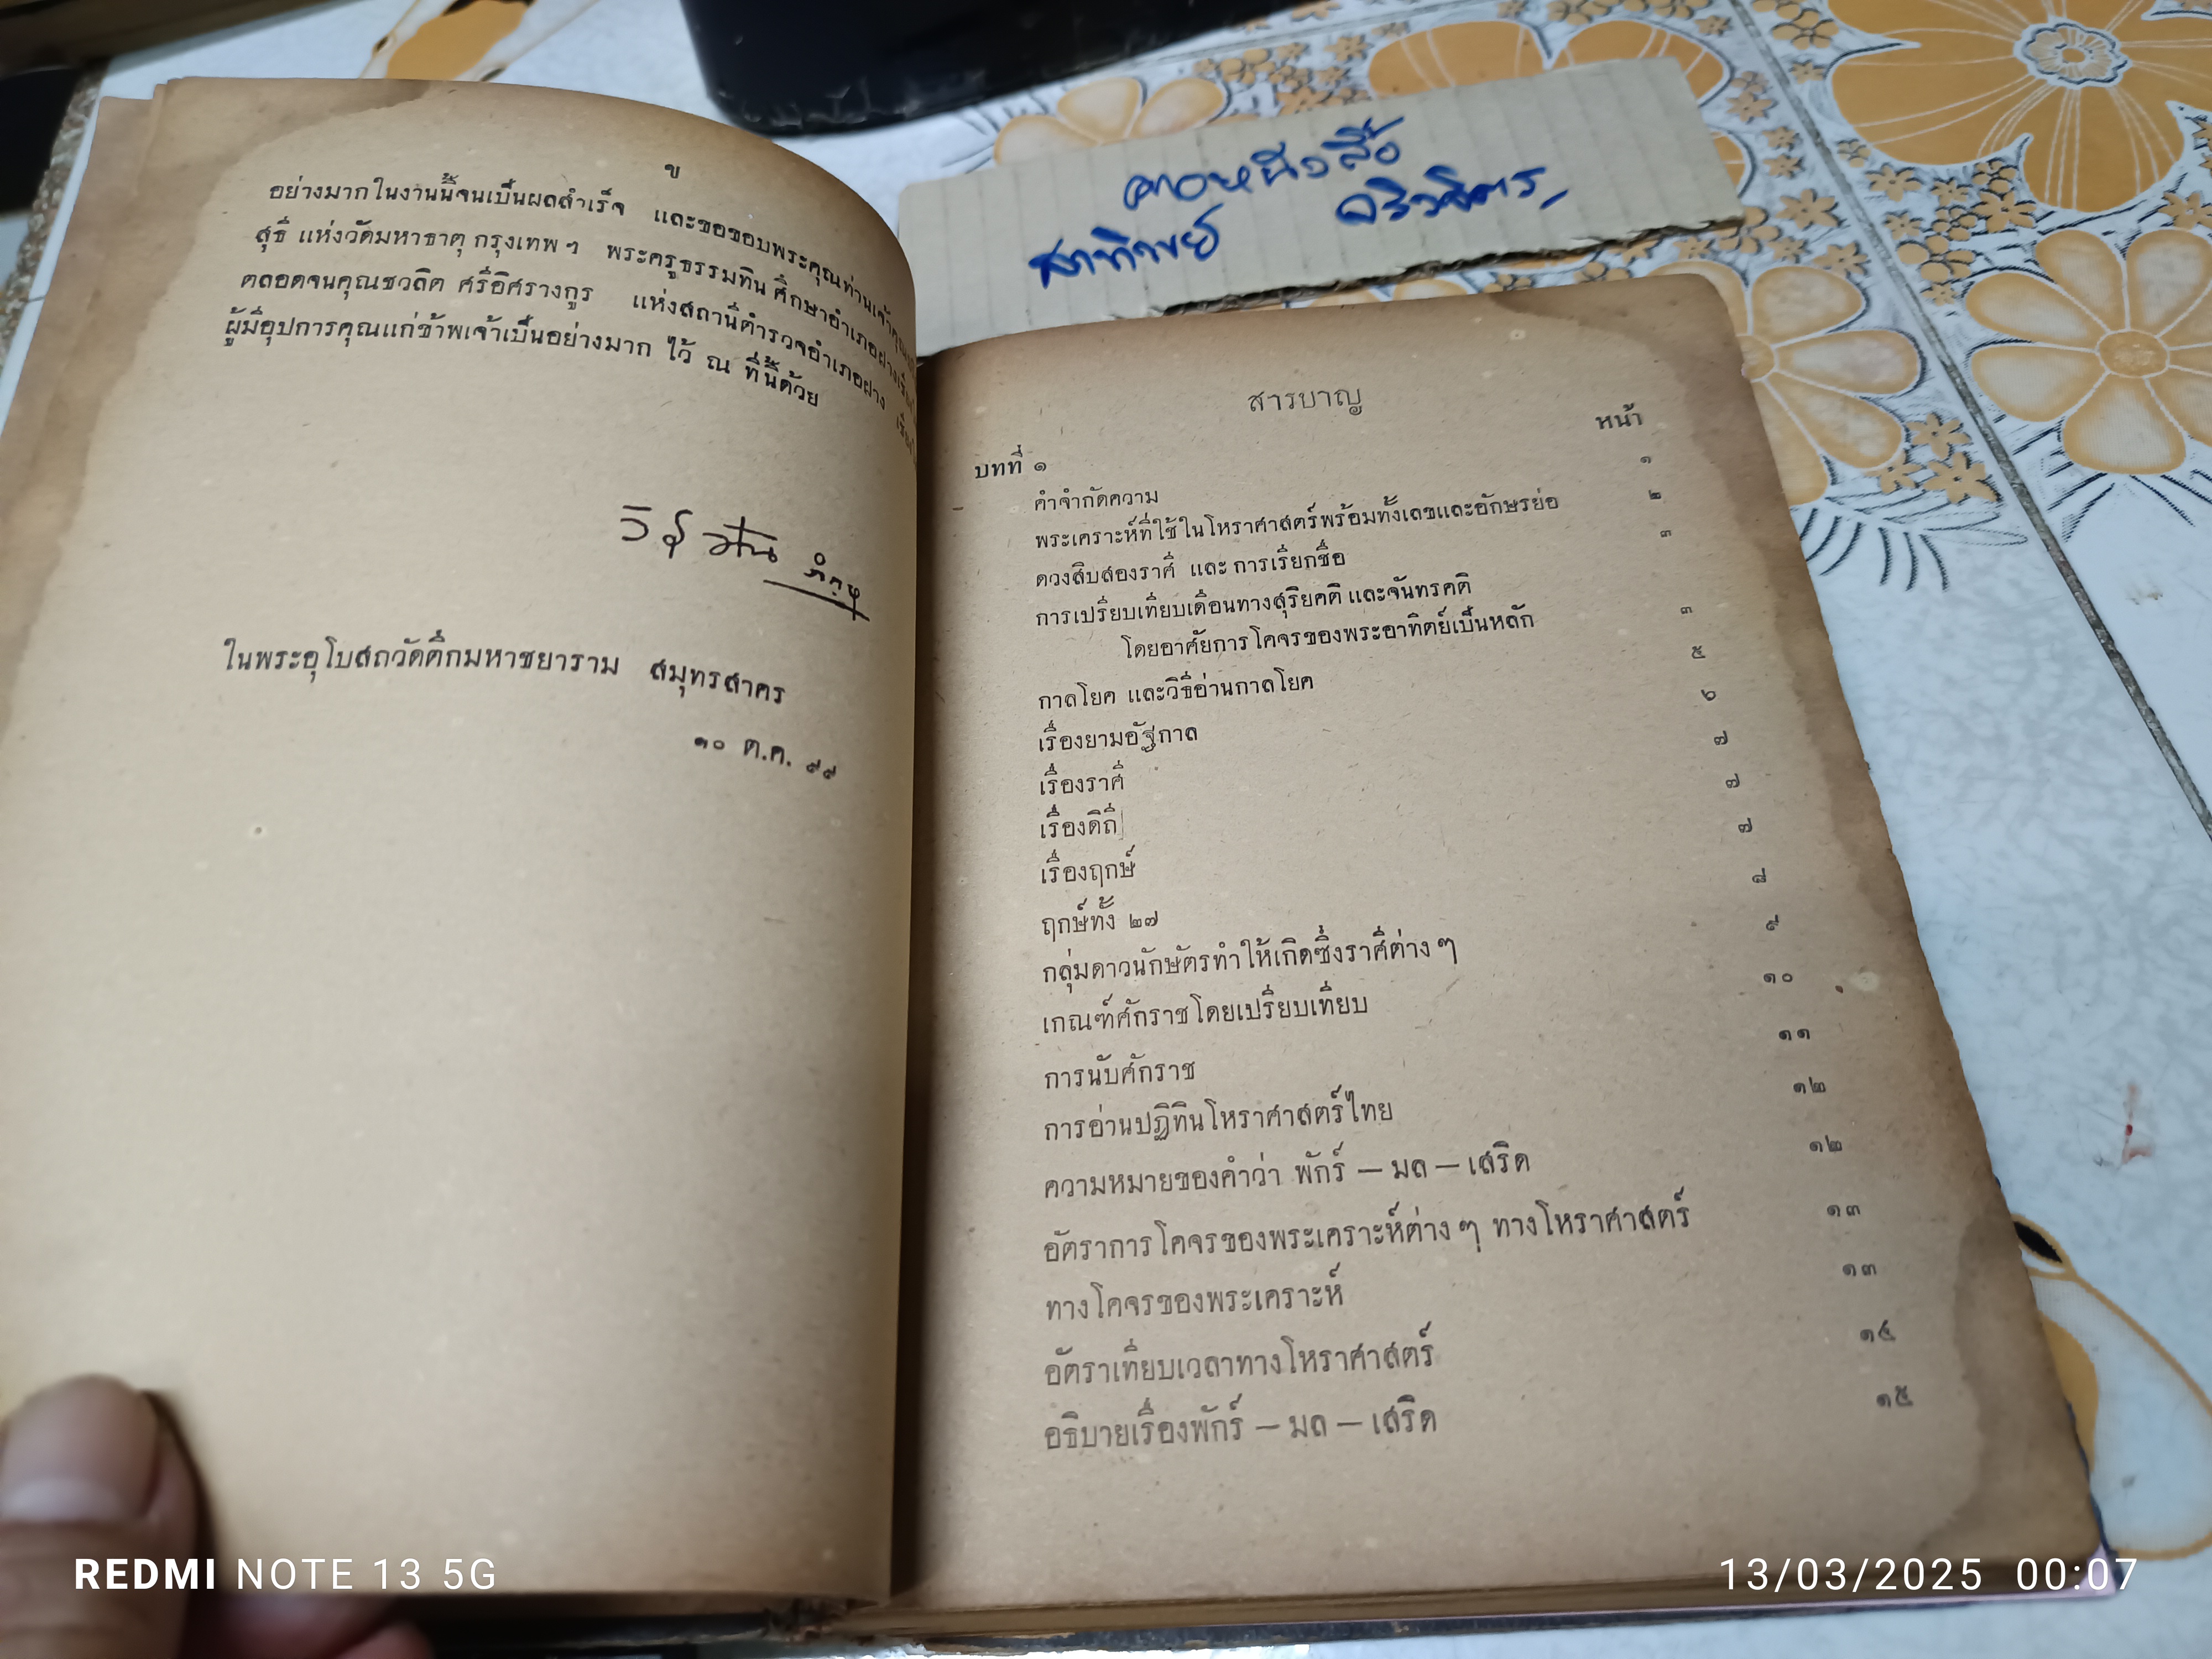 ข
อย่างมากในงานนี้จนเป็นผลสำเร็จ และขอขอบพระคุณท่านเจ้าคุณ
สุธี แห่งวัดมหาธาตุ กรุงเทพ ฯ พระครูธรรมทิน ศึกษาอำเภอฝาง
ตลอดจนคุณชวลิต ศรีอิศรางกูร แห่งสถานีตำรวจอำเภอฝาง
ผู้มีอุปการคุณแก่ข้าพเจ้าเป็นอย่างมาก ไว้ ณ ที่นี้ด้วย
ภิกขุ
ในพระอุโบสถวัดตึกมหาชยาราม สมุทรสาคร
๑๐ ต.ค. ๙๙
สารบาญ
หน้า
บทที่ ๑
คำจำกัดความ ๑
พระเคราะห์ที่ใช้ในโหราศาสตร์พร้อมทั้งเลขและอักษรย่อ ๒
ดวงสิบสองราศี และ การเรียกชื่อ ๓
การเปรียบเทียบเดือนทางสุริยคติ และจันทรคติ
โดยอาศัยการโคจรของพระอาทิตย์เป็นหลัก ๓
กาลโยค และวิธีอ่านกาลโยค ๕
เรื่องยามอัฐกาล ๖
เรื่องราศี ๗
เรื่องดิถี ๗
เรื่องฤกษ์ ๗
ฤกษ์ทั้ง ๒๗ ๘
กลุ่มดาวนักษัตรทำให้เกิดซึ่งราศีต่าง ๆ ๙
เกณฑ์ศักราชโดยเปรียบเทียบ ๑๐
การนับศักราช ๑๑
การอ่านปฏิทินโหราศาสตร์ไทย ๑๒
ความหมายของคำว่า พักร์ — มล — เสริด ๑๒
อัตราการโคจรของพระเคราะห์ต่าง ๆ ทางโหราศาสตร์ ๑๓
ทางโคจรของพระเคราะห์ ๑๓
อัตราเทียบเวลาทางโหราศาสตร์ ๑๔
อธิบายเรื่องพักร์ — มล — เสริด ๑๕
REDMI NOTE 13 5G
13/03/2025 00:07